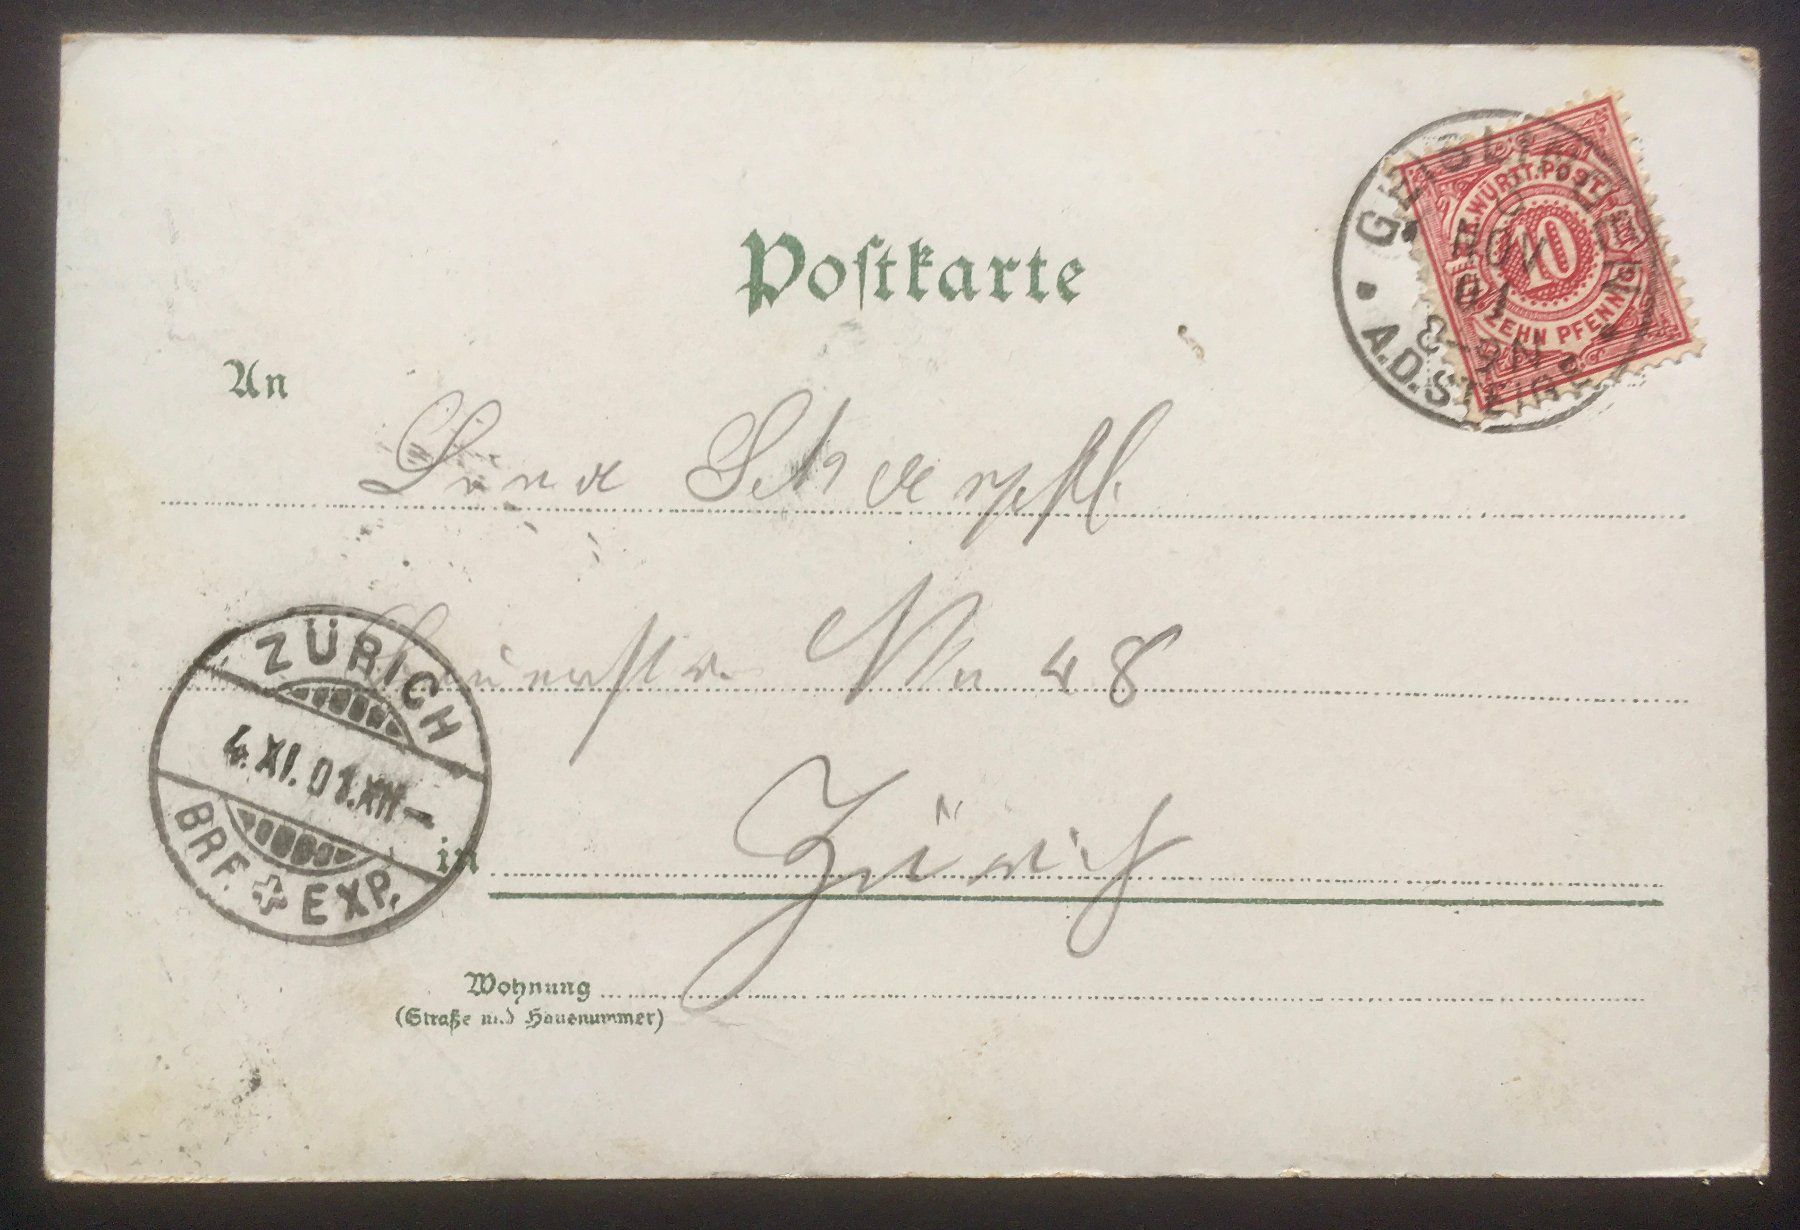 Postkarte
K. WÜRTT. POST
10
ZEHN PFENNIG
GEISLINGEN
A.D. STEIG
An
Lina
ZÜRICH
4.XI.01.XII–
BRF. EXP.
No 48
in Zürich
Wohnung
(Straße und Hausnummer)